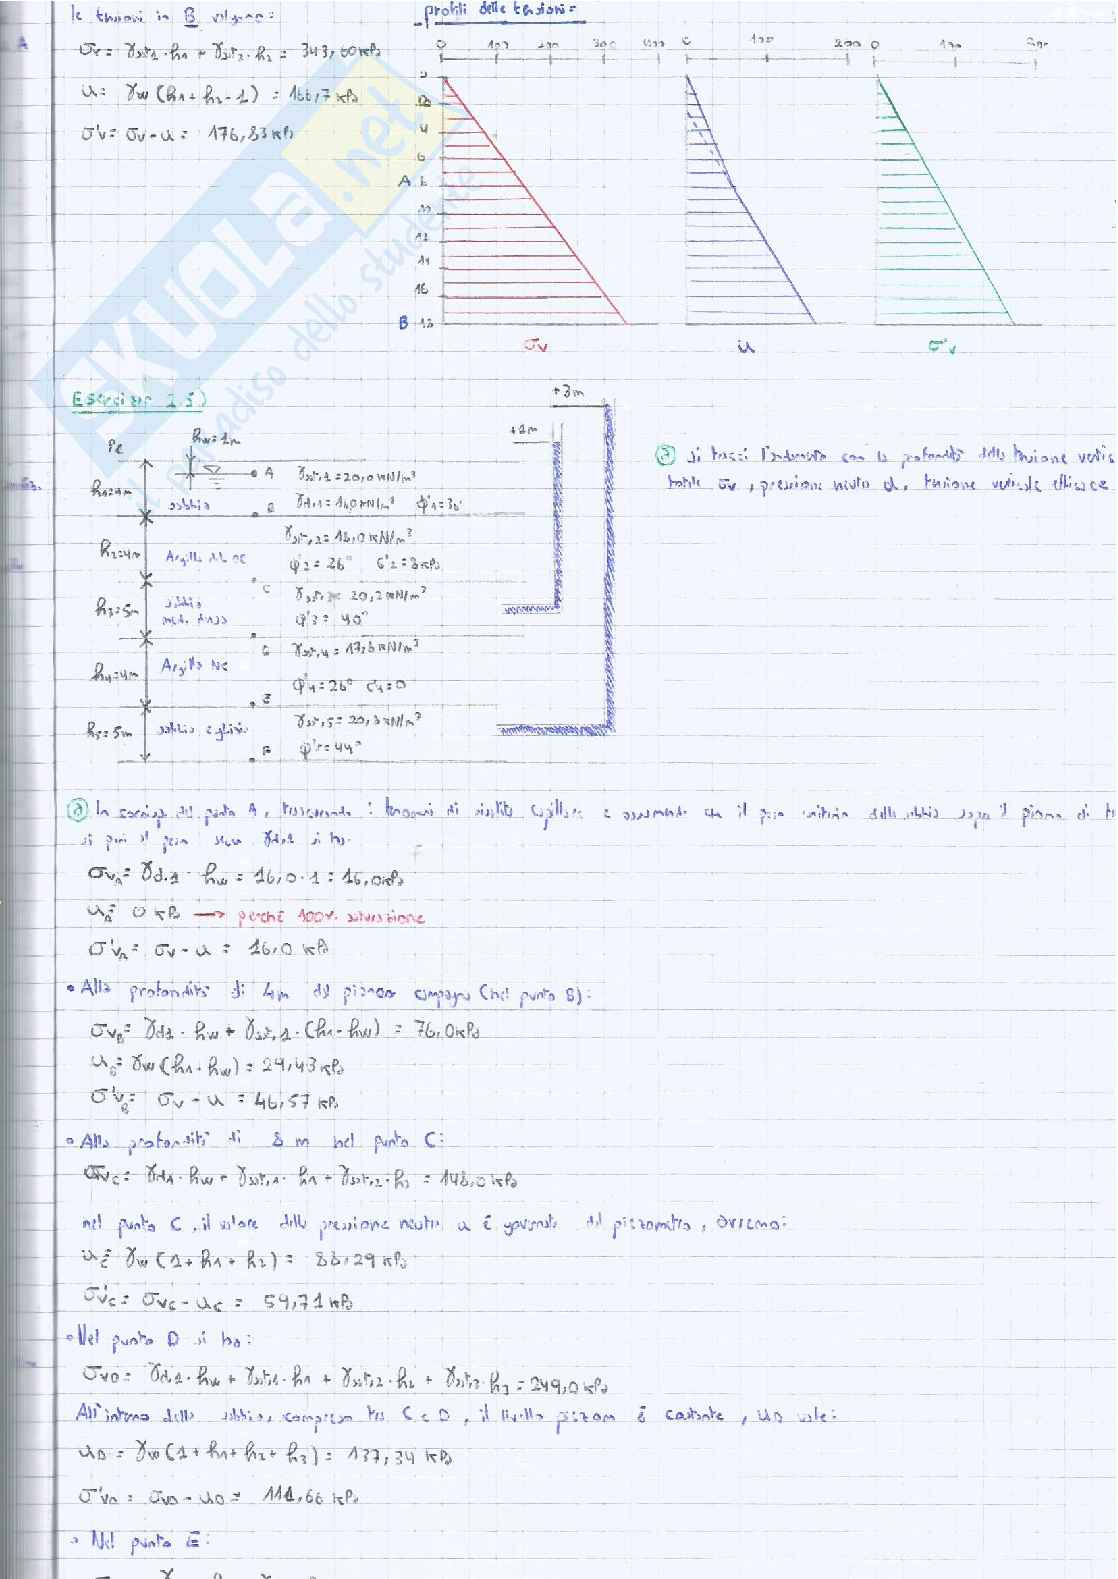 le tensioni in B valgono:
σv = γsat,1 · h1 + γsat,2 · h2 = 343,60 kPa
u = γw (h1 + h2 - 1) = 166,7 kPa
σ'v = σv - u = 176,83 kPa
profili delle tensioni =
0 100 200 300 400
0 100 200
0 100 200
A
B
σv
u
σ'v
SKUOLA.net
il paradiso dello studente
Esercizio 1.5)
+3m
+1m
PC
hw=1m
A
h1=4m
sabbia
γsat,1=20,0 kN/m³
γd,1=16,0 kN/m³
B
h2=4m
Argilla deb OC
γsat,2=18,0 kN/m³
φ'2=26° c'2=3kPa
C
h3=5m
sabbia
med. densa
γsat,3= 20,2 kN/m³
φ'3= 40°
h4=4m
Argilla NC
γsat,4=17,8 kN/m³
φ'4=26° c'4=0
E
h5=5m
sabbia e ghiaia
γsat,5=20,3 kN/m³
φ'5=44°
a) si tracci l'andamento con la profondità della tensione
totale σv, pressione neutra u, tensione verticale efficace
a) In corrisp. del punto A, trascurando i fenomeni di risalita capillare e assumendo che il peso unitario della sabbia sopra il piano di
si pari al peso secco γd,1 si ha:
σvA = γd,1 · hw = 16,0 · 1 = 16,0 kPa
uA = 0 kPa → perché 100% saturazione
σ'vA = σv - u = 16,0 kPa
• Alla profondità di 4m dal piano campagna (nel punto B):
σvB = γd1 · hw + γsat,1 · (h1-hw) = 76,0 kPa
uB = γw (h1-hw) = 29,43 kPa
σ'vB = σv - u = 46,57 kPa
• Alla profondità di 8 m nel punto C:
σvC = γd1 · hw + γsat,1 · h1 + γsat,2 · h2 = 148,0 kPa
nel punto C, il valore della pressione neutra u è governato dal piezometro, avremo:
uC = γw (1 + h1 + h2) = 88,29 kPa
σ'vC = σvC - uC = 59,71 kPa
• Nel punto D si ha:
σvD = γd,1 · hw + γsat,1 · h1 + γsat,2 · h2 + γsat,3 · h3 = 249,0 kPa
All'interno della sabbia, compresa tra C e D, il livello piezom è costante, uD vale:
uD = γw (1 + h1 + h2 + h3) = 137,34 kPa
σ'vD = σvD - uD = 111,66 kPa
• Nel punto E: